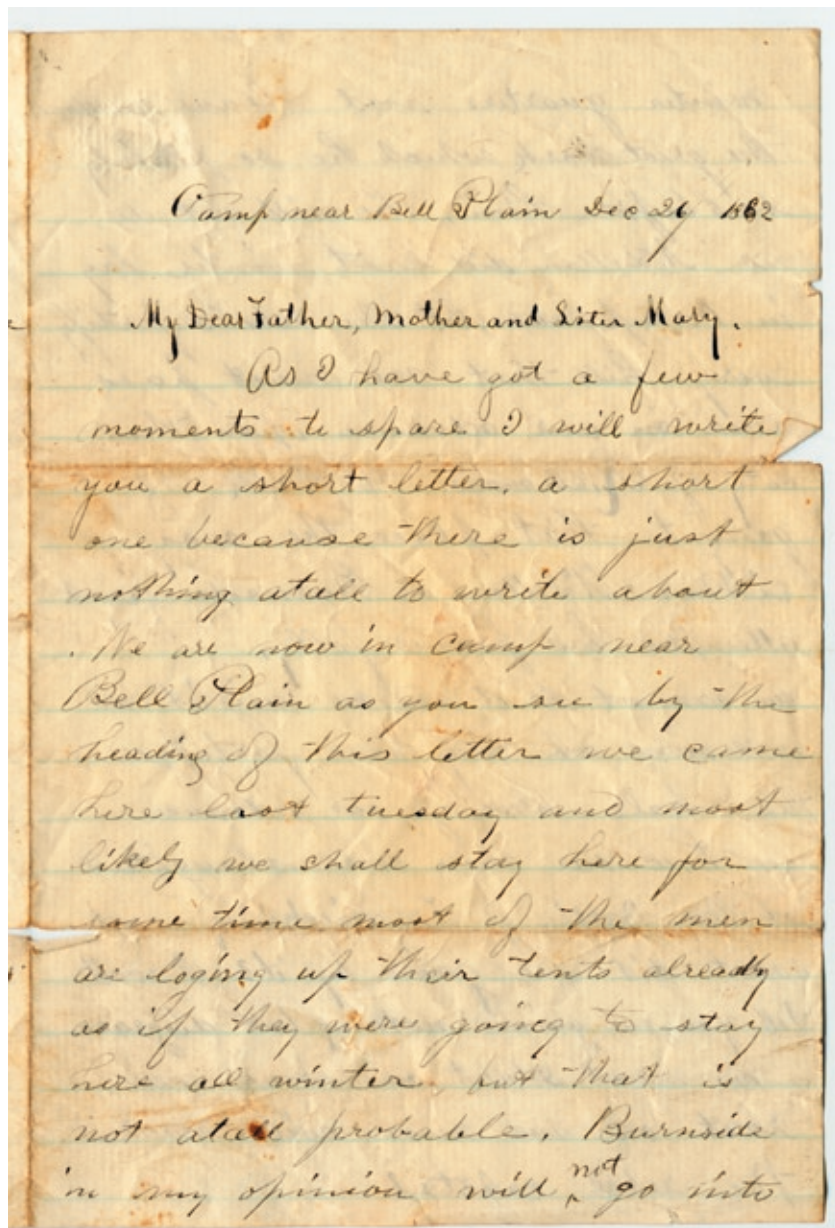 Camp near Bell Plain Dec 26 1862
My Dear Father, Mother and Sister Mary.
As I have got a few
moments to spare I will write
you a short letter. a short
one because there is just
nothing atall to write about
. We are now in camp near
Bell Plain as you see by the
heading of this letter we came
here last tuesday and most
likely we shall stay here for
some time most of the men
are loging up their tents already
as if they were going to stay
here all winter, but that is
not atall probable. Burnside
in my opinion will not go into